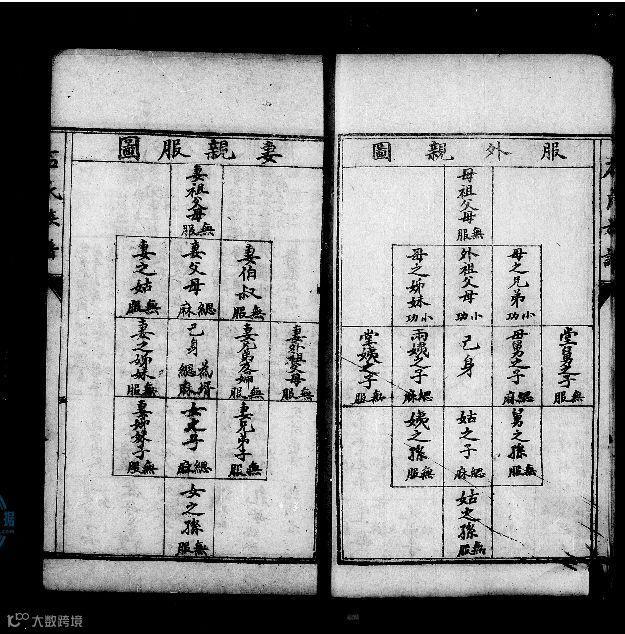 服外親圖
母祖父母無服
母之兄弟小功
外祖父母小功
母之姊妹小功
堂舅之子無服
母舅之子緦麻
己身
兩姨之子緦麻
堂姨之子無服
舅之孫無服
姑之子緦麻
姨之孫無服
姑之孫無服
妻親服圖
妻祖父母無服
妻伯叔無服
妻父母緦麻
妻之姑無服
妻外祖父母無服
妻兄弟及婦無服
己身為壻緦麻
妻之姊妹無服
妻兄弟子無服
女之子緦麻
妻姊妹子無服
女之孫無服
据
大数跨境